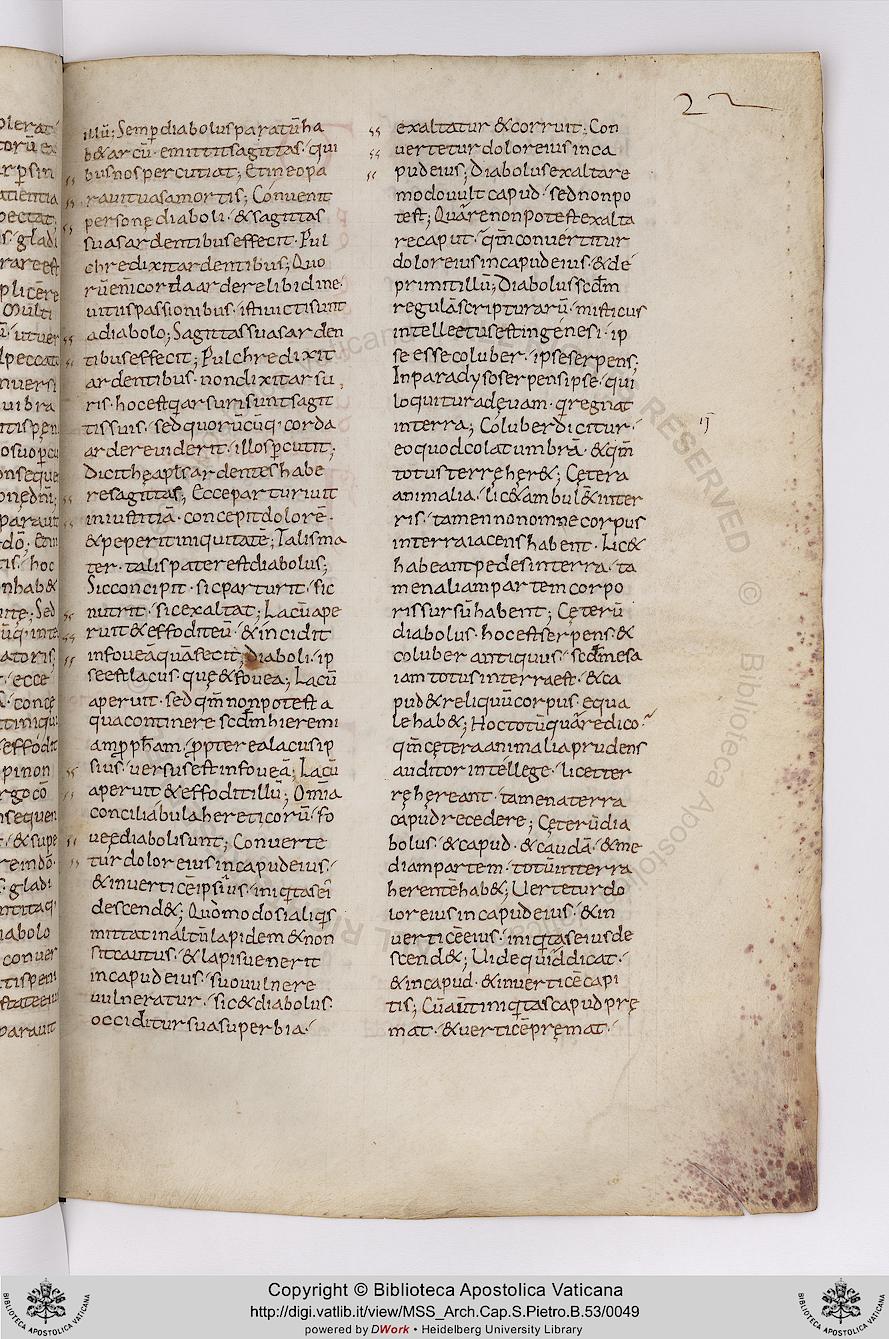 22
illū; Semp̄ diabolus paratū ha
b& arcū · emittit sagittas · qui
bus nos percutiat; Et in eo pa
ravit vasa mortis; Convenit
personę diaboli · & sagittas
suas ardentibus effecit · Pul
chre dixit ardentibus; Quo
rū enī corda ardere libidine ·
vitiis passionibus · isti victi sunt
a diabolo; Sagittas suas arden
tibus effecit; Pulchre dixit
ardentibus · non dixit arsu
ris · hoc est q̄ arsuri sunt sagit
tis suis · sed quorūcūq; corda
ardere viderit · illos p̄cutit;
Dicit h& apls ardentes habe
re sagittas; Ecce parturiit
iniustitiā · concepit dolorē ·
& peperit iniquitatē; Talis ma
ter · talis pater est diabolus;
Sic concipit · sic parturit · sic
nutrit · sic exaltat; Lacū ape
ruit & effodit eū · & incidit
in foveā quā fecit; diaboli · ip
se est lacus · quę & fovea; Lacū
aperuit · sed qm̄ non potest a
qua continere scdm̄ hieremi
am pph̄am · p̄pterea lacus ip
sius · versus est in foveā; Lacū
aperuit & effodit illū; Om̄ia
conciliabula hereticorū · fo
veę diaboli sunt; Converte
tur dolor eius in capud eius ·
& in verticē ipsius · iniq̄tas ei
descend&; Quomodo si aliq̄s
mittat in altū lapidem & non
sit cautus · & lapis venerit
in capud eius · suo vulnere
vulneratur · sic & diabolus ·
occiditur sua superbia ·
exaltatur & corruit; Con
vertetur dolor eius in ca
pud eius; Diabolus exaltare
modo vult capud · sed non po
test; Quare non potest exalta
re caput · qm̄ convertitur
dolor eius in capud eius · & de
primit illū; Diabolus scdm̄
regulā scripturarū · misticus
intellectus est in genesi · ip
se esse coluber · ipse serpens;
In paradyso serpens ipse · qui
loquitur ad evam · q̄ regnat
in terra; Coluber dicitur ·
eo quod colat umbrā · & qm̄
totus terrę her&; Cetera
animalia · lic& ambul& in ter
ris · tamen non omne corpus
in terra iacens habent · Lic&
habeant pedes in terra · ta
men aliam partem corpo
ris sursū habent; Ceterū
diabolus · hoc est serpens · &
coluber antiquus · scdm̄ esa
iam totus in terra est · & ca
pud & reliquū corpus · equa
le hab&; Hoc totū quare dico ·
qm̄ cetera animalia prudens
auditor intellege · licet ter
rę hereant · tamen a terra
capud recedere; Ceterū dia
bolus · & capud · & caudā · & me
diam partem · totū in terra
herentē hab&; Vertetur do
lor eius in capud eius · & in
verticē eius · iniq̄tas eius de
scend&; Vide quid dicat ·
& in capud · & in verticē capi
tis; Cū aut̄ iniq̄tas capud prę
mat · & verticē pręmat ·
Copyright © Biblioteca Apostolica Vaticana
http://digi.vatlib.it/view/MSS_Arch.Cap.S.Pietro.B.53/0049
powered by DWork • Heidelberg University Library